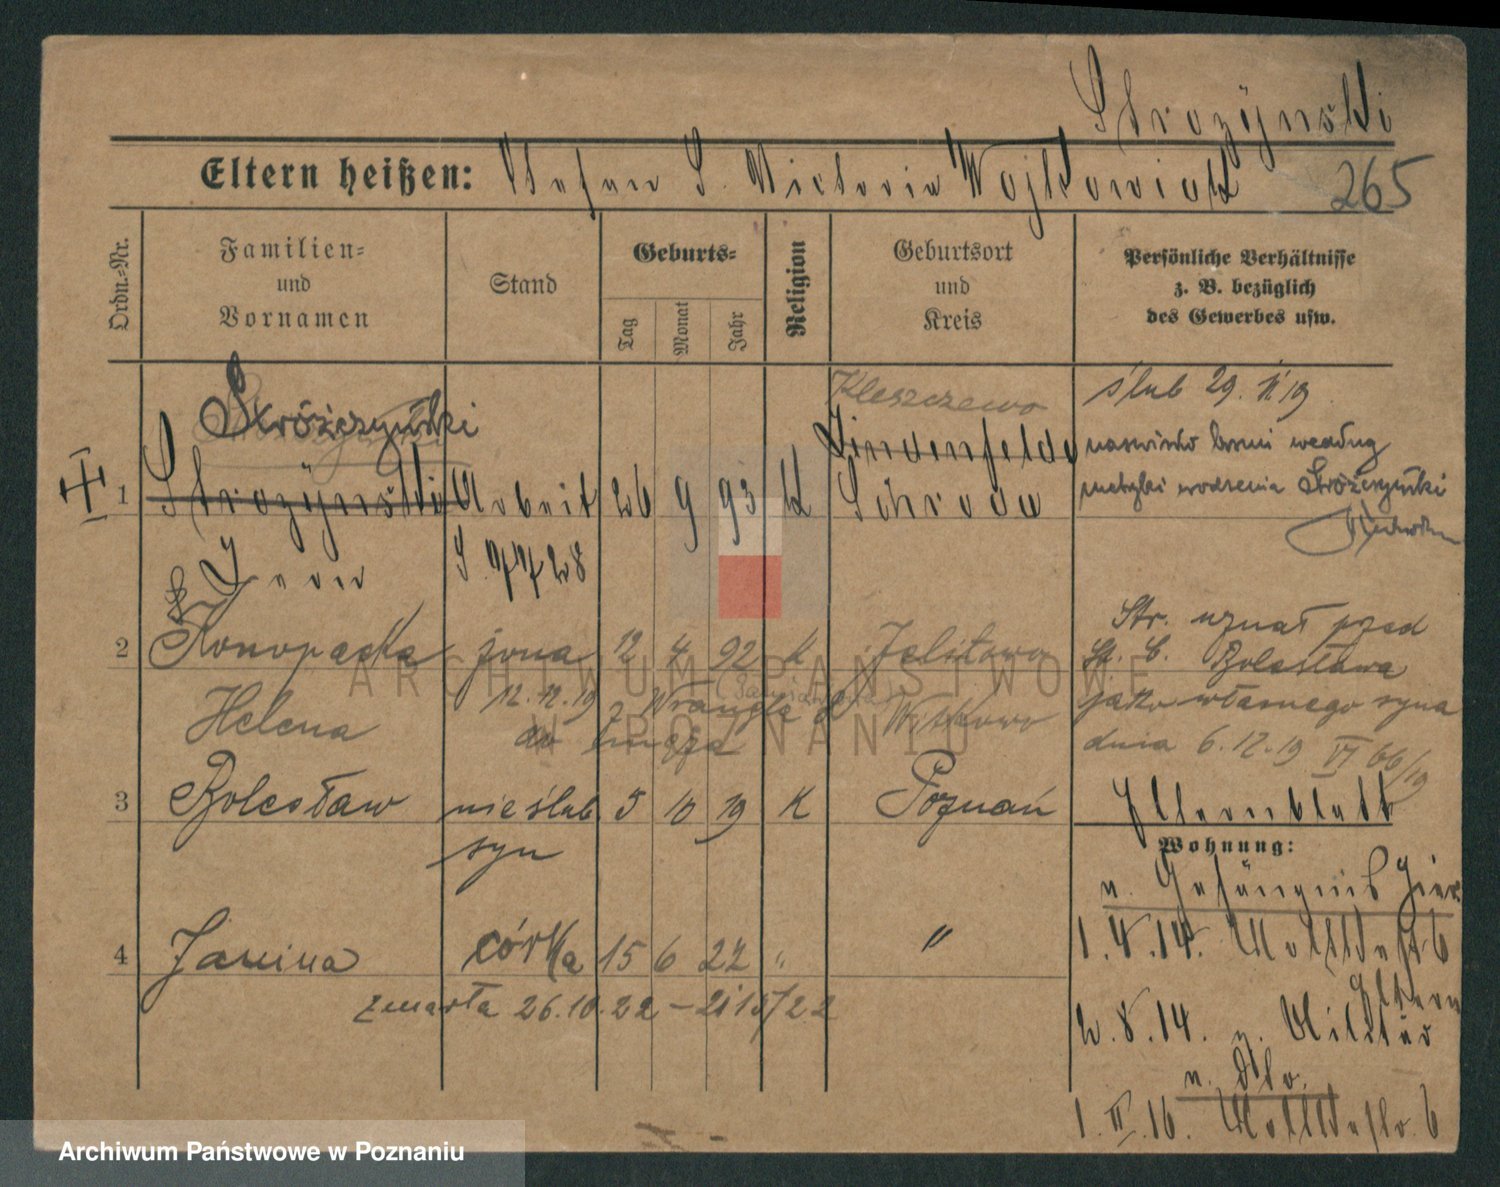 Strozÿnski
Eltern heißen: Stefan S. Victoria Wojtkowiak
265
Ordn.-Nr.
Familien- und Vornamen
Stand
Geburts-
Tag
Monat
Jahr
Religion
Geburtsort und Kreis
Persönliche Verhältnisse
z. B. bezüglich
des Gewerbes usw.
Kleszczewo
ślub 29. XI 19
Stróżczyński
Lindenfelde
nazwisko brzmi według
1 Strozÿnski Arbeit 26 9 93 K Schroda
metryki urodzenia Stróżczyński
Jan
2 Konopacka żona 12 4 92 K Jelitowo
Str. uznał przed
St. C. Bolesława
Helena
12.12.19
Witkowo
jako własnego syna
do męża
dnia 6.12.19 VI 66/19
3 Bolesław nieślub. 5 10 19 K Poznań
syn
Elternblatt
Wohnung:
n. Gefängnis hier
4 Janina córka 15 6 22 " "
zmarła 26.10.22 –
1.V.14.
Eltern
2.8.14. z. Militär
1.II.16.
ARCHIWUM PAŃSTWOWE
W POZNANIU
Archiwum Państwowe w Poznaniu